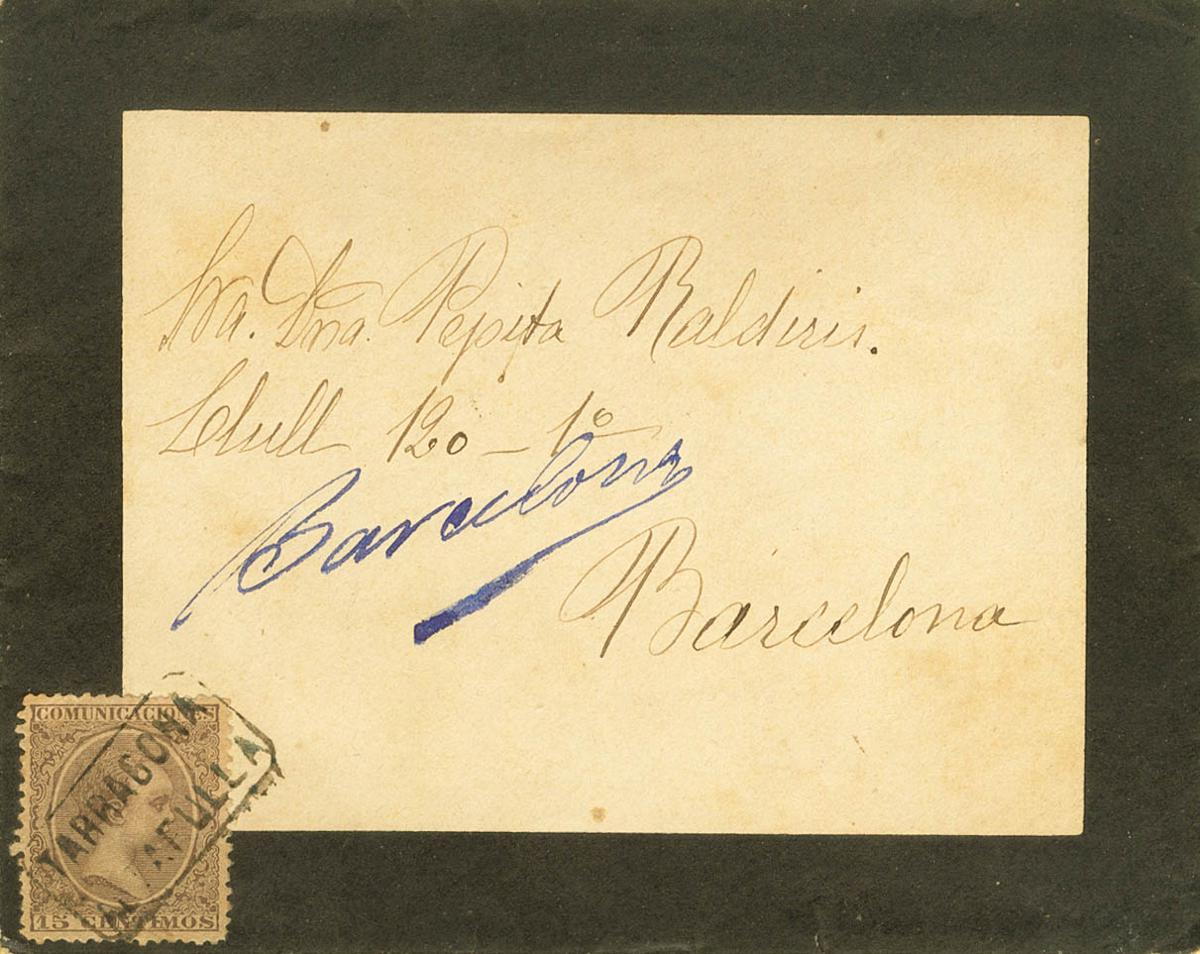 Sra. Dna. Pepita Raldiris.
Llull 120 - 1º
Barcelona
Barcelona
COMUNICACIONES
TARRAGONA
AFULLA
15 CENTIMOS